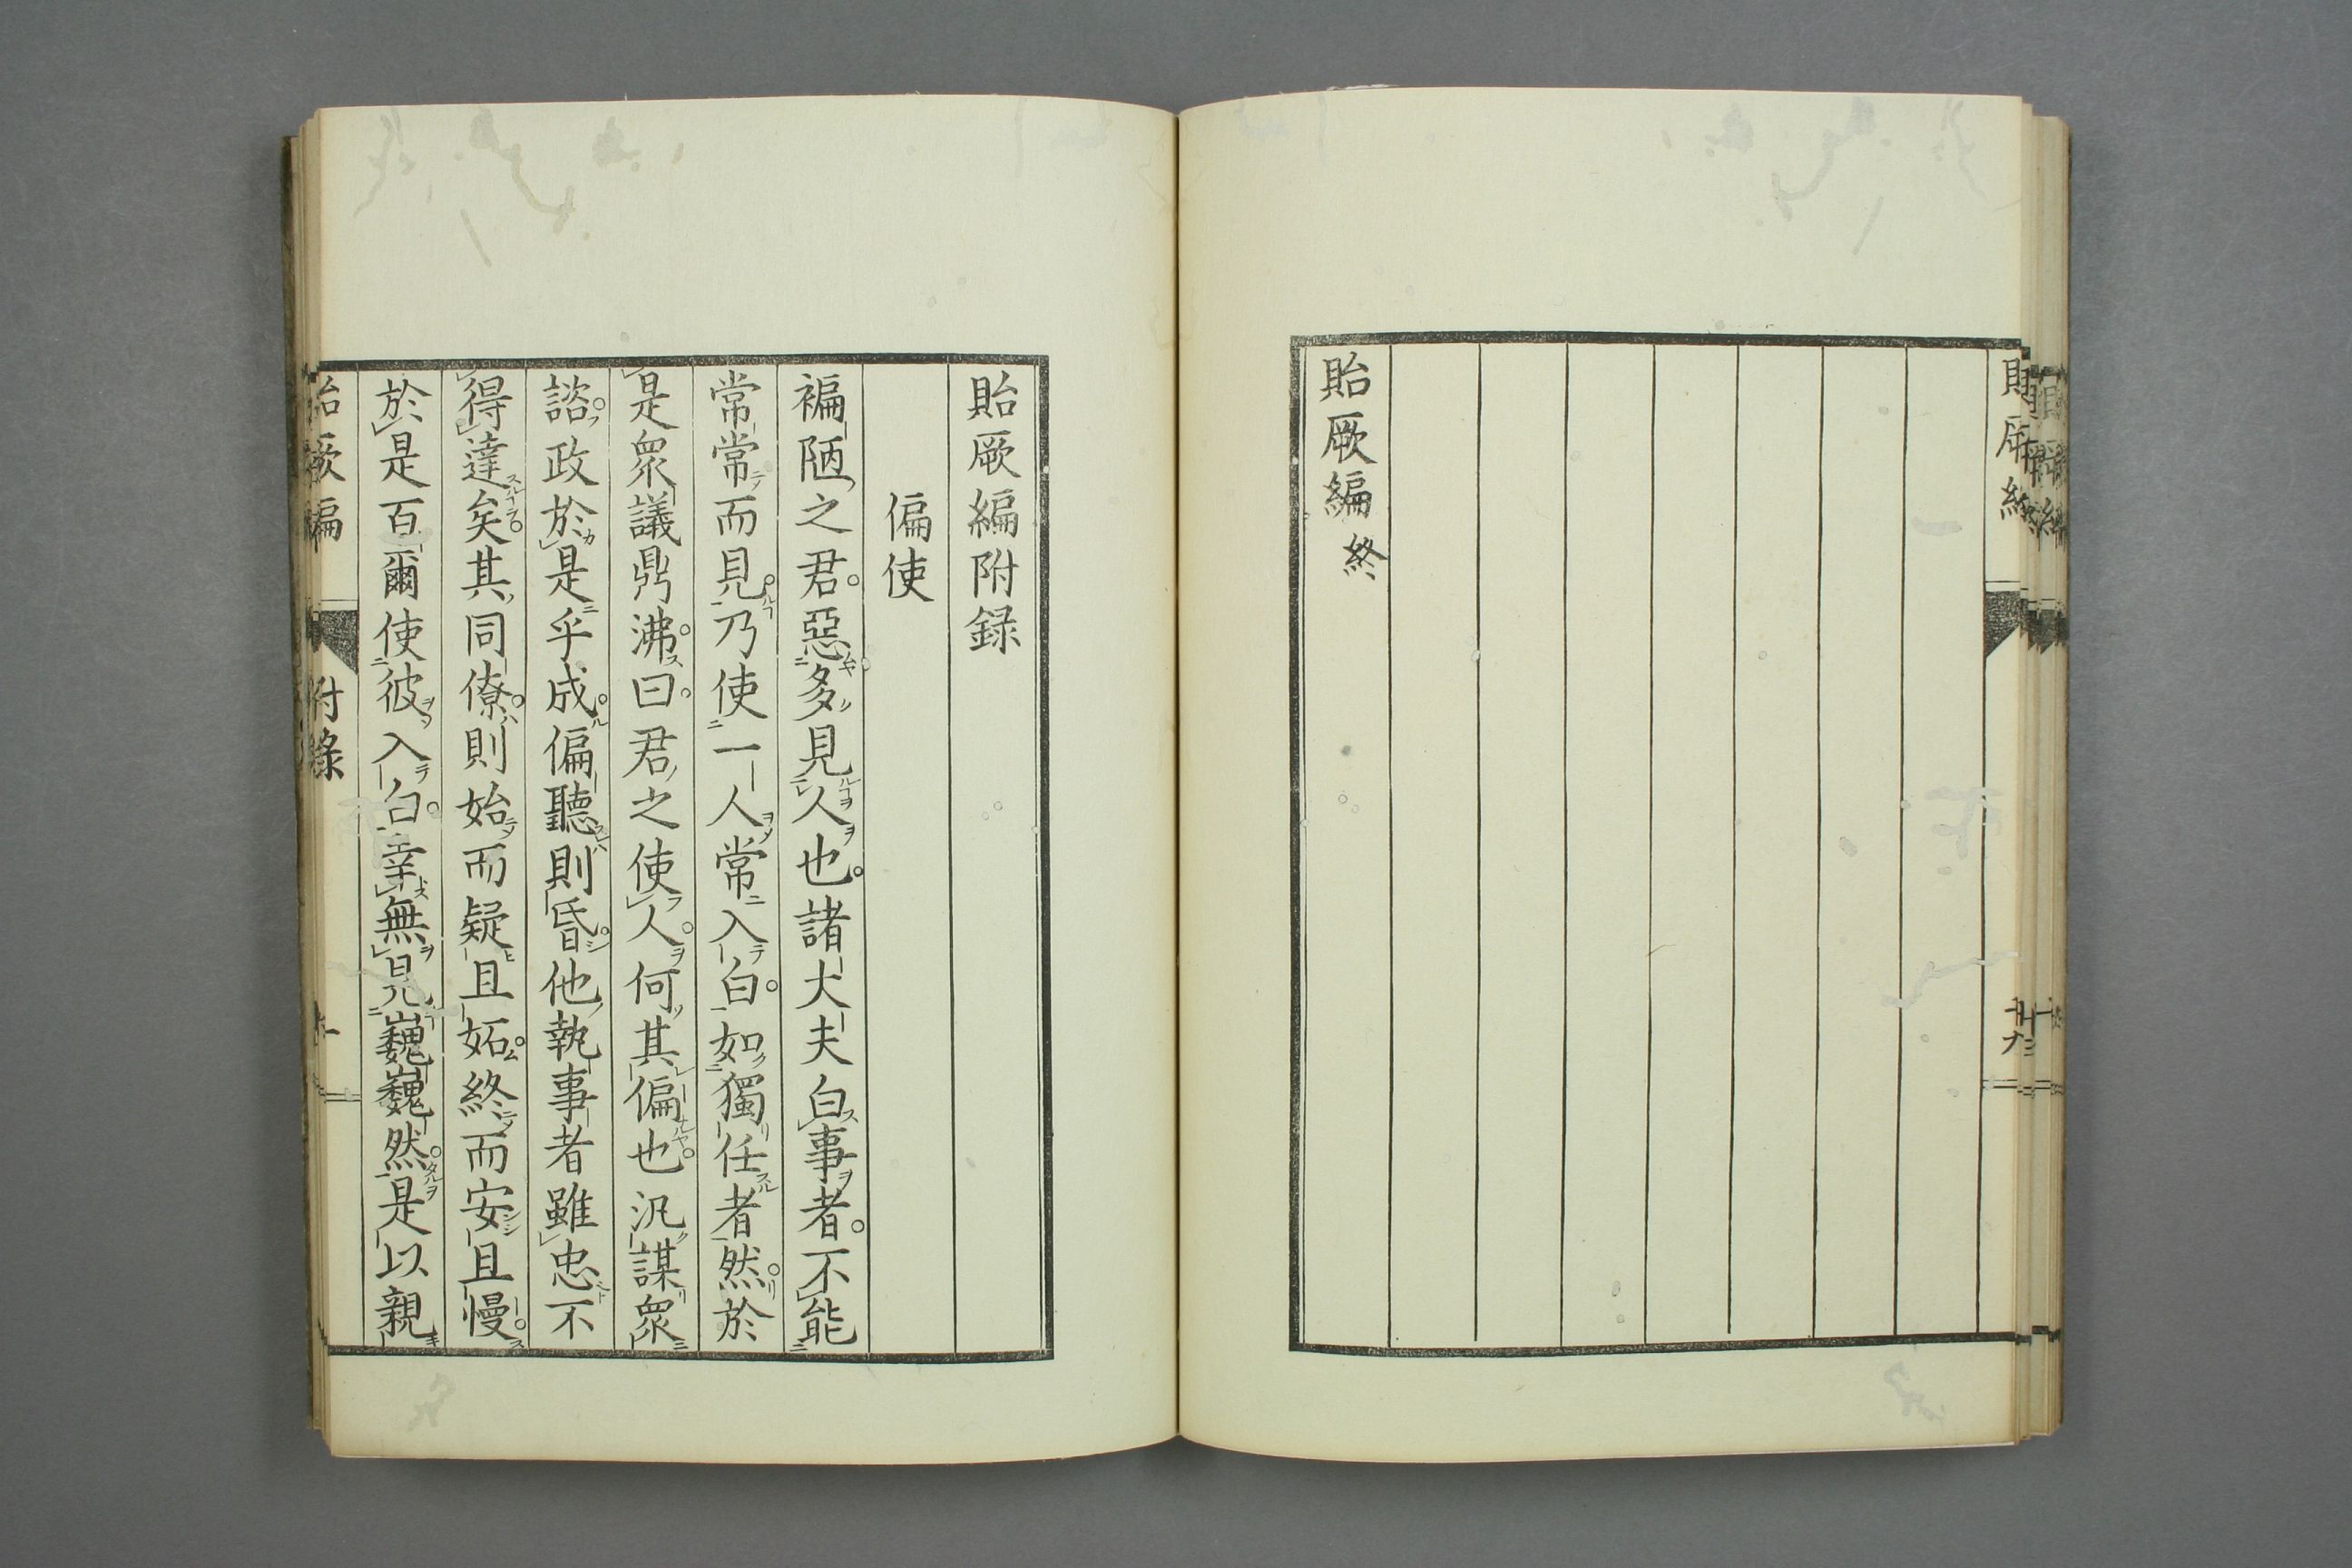 貽厥編終
貽厥編附録
偏使
褊陋之君惡多見人也諸大夫白事者不能
常常而見乃使一人常入白如獨任者然於
是衆議鼎沸曰君之使人何其偏也汎謀衆
諮政於是乎成偏聽則昏他執事者雖忠不
得達矣其同僚則始而疑且妬終而安且慢
於是百爾使彼入白幸無見巍巍然是以親
貽厥編 附録 一